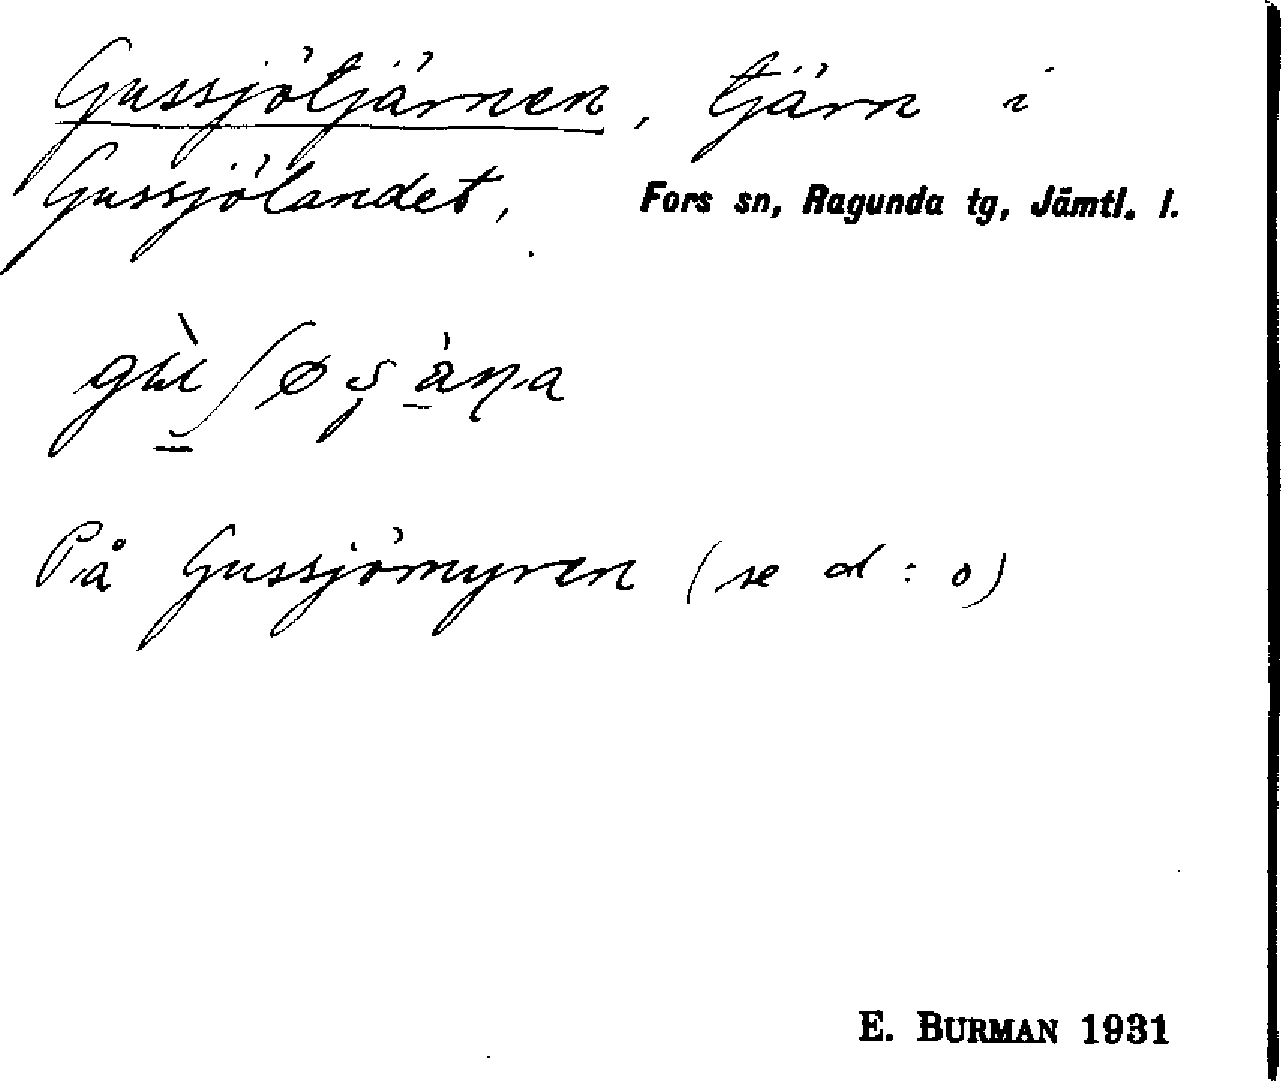 Gussjötjärnen, tjärn i
Gussjölandet, Fors sn, Ragunda tg, Jämtl. l.
På Gussjömyren (se d:o)
E. BURMAN 1931